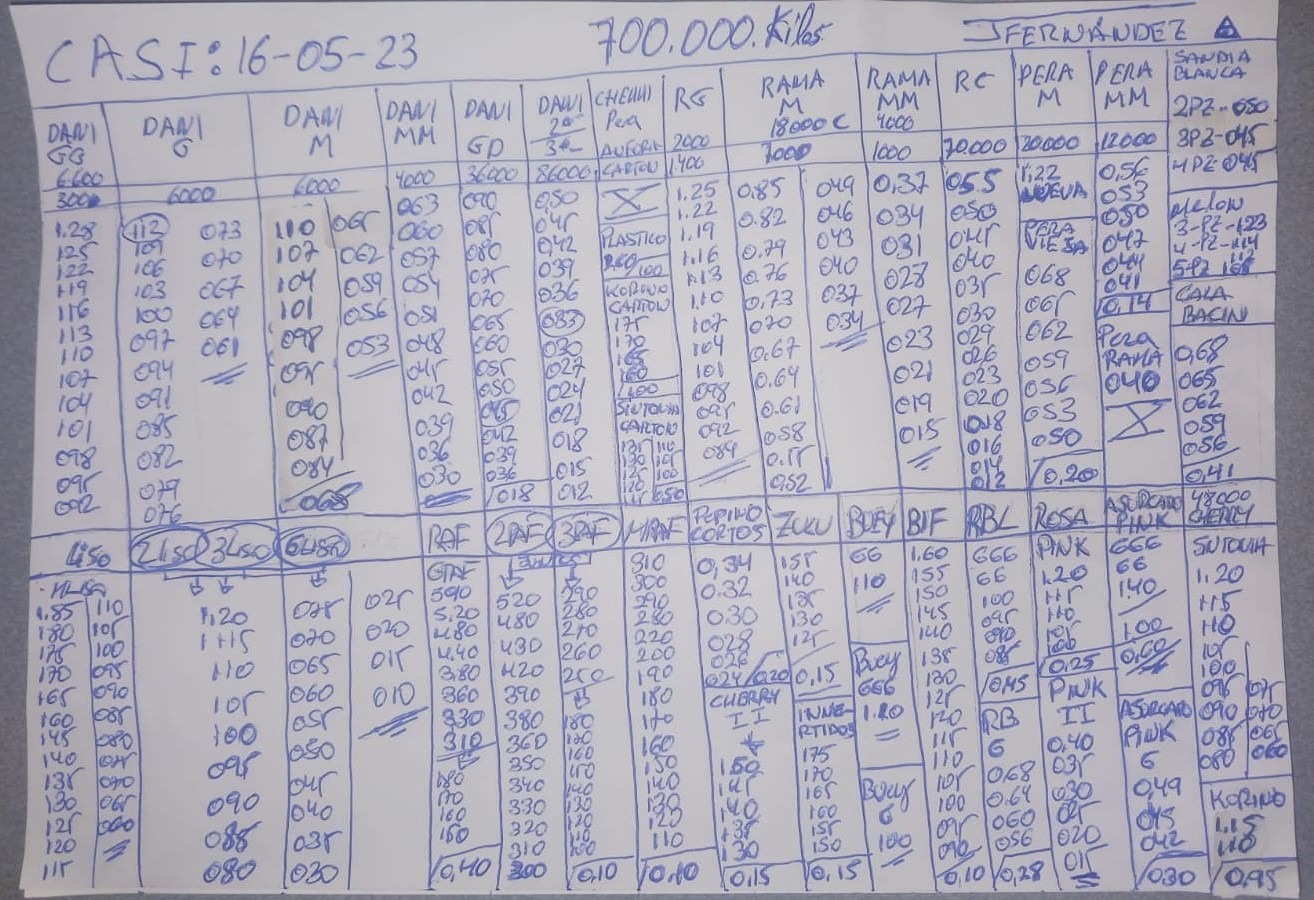 CASI: 16-05-23 700.000.Kilos JFERNÁNDEZ
DANI GG
6600
3000
1.28
125
122
119
116
113
110
107
104
101
098
095
092
DANI G
6000
112 073
109 070
106 067
103 064
100 061
097
094
091
085
082
079
076
DANI M
6000
110 065
107 062
104 059
101 056
098 053
095
090
087
084
068
DANI MM
4000
063
060
057
054
051
048
045
042
039
036
030
DANI GD
36000
090
085
080
075
070
065
060
055
050
045
042
039
036
018
DANI 2ª 3ª
86000
0,50
045
042
039
036
033
030
027
024
021
018
015
012
CHERRI Pera
CARTON
X
PLASTICO
100
CARTON
175
170
165
160
100
SINTONIA
CARTON
135 110
130 105
125 100
0,50
RG
2000
1.400
1.25
1.22
1.19
1.16
1.13
1.10
107
104
101
098
095
092
084
RAMA M
18000 C
7000
0.85 049
0.82 046
0.79 043
0.76 040
0.73 037
070 034
0.67
0.64
0.61
0.58
0.55
0.52
RAMA MM
4000
1000
0,37
034
031
028
027
023
021
019
015
RC
70.000
055
050
045
040
035
030
029
026
023
020
018
016
014
012
PERA M
30000
1.22
NUEVA
PERA VIEJA
068
065
062
059
056
053
050
0,20
PERA MM
12000
0,56
053
050
047
044
041
0,14
Pera RAMA
040
X
SANDIA BLANCA
2PZ-050
3PZ-045
4PZ-045
MELON
3-PZ-123
4-PZ-114
5PZ 108
CALABACIN
0,68
065
062
059
056
0,41
Liso
1.85 110
180 105
175 100
170 095
165 090
160 085
145 080
140 075
135 070
130 065
125 060
120
115
2LISO 3LISO
1.20
1.15
110
105
100
095
090
085
080
6LISO
075 025
070 020
065 015
060 010
055
050
045
040
035
030
RAF
GRAF
590
5.20
4.80
4.40
380
360
330
310
180
170
160
150
0,40
2RAF 3RAF
JUNTOS
520 290
480 280
430 270
420 260
390 250
380 180
360 170
350 160
340 150
330 140
320 130
310 120
300 110
100
0,10
MRAF
310
300
290
280
220
200
190
180
170
160
150
140
130
120
110
0,10
PEPINO CORTOS
0,34
0.32
0.30
028
026
024 0,20
CHERRY II
1.50
145
140
135
130
0,15
ZULU
155
140
135
130
125
0,15
INJERTIDOS
175
170
165
160
155
150
0,15
BUEY
66
110
Buey
666
1.20
Buey
6
100
BIF
1.60
155
150
145
140
135
130
125
120
115
110
105
100
095
090
0,10
RBL
666
66
100
095
090
085
0,45
RB
6
0.68
0.64
060
056
0,28
ROSA
PINK
1.20
115
110
105
100
0,25
PINK II
0.40
035
030
025
020
015
ASURCADO PINK
666
66
1.40
1.00
0,60
ASURCADO PINK
6
0,49
045
042
0,30
48000
CHERRY
SINTONIA
1.20
115
110
105
100
095 075
090 070
085 065
080 060
KORINO
1.15
110
0,95